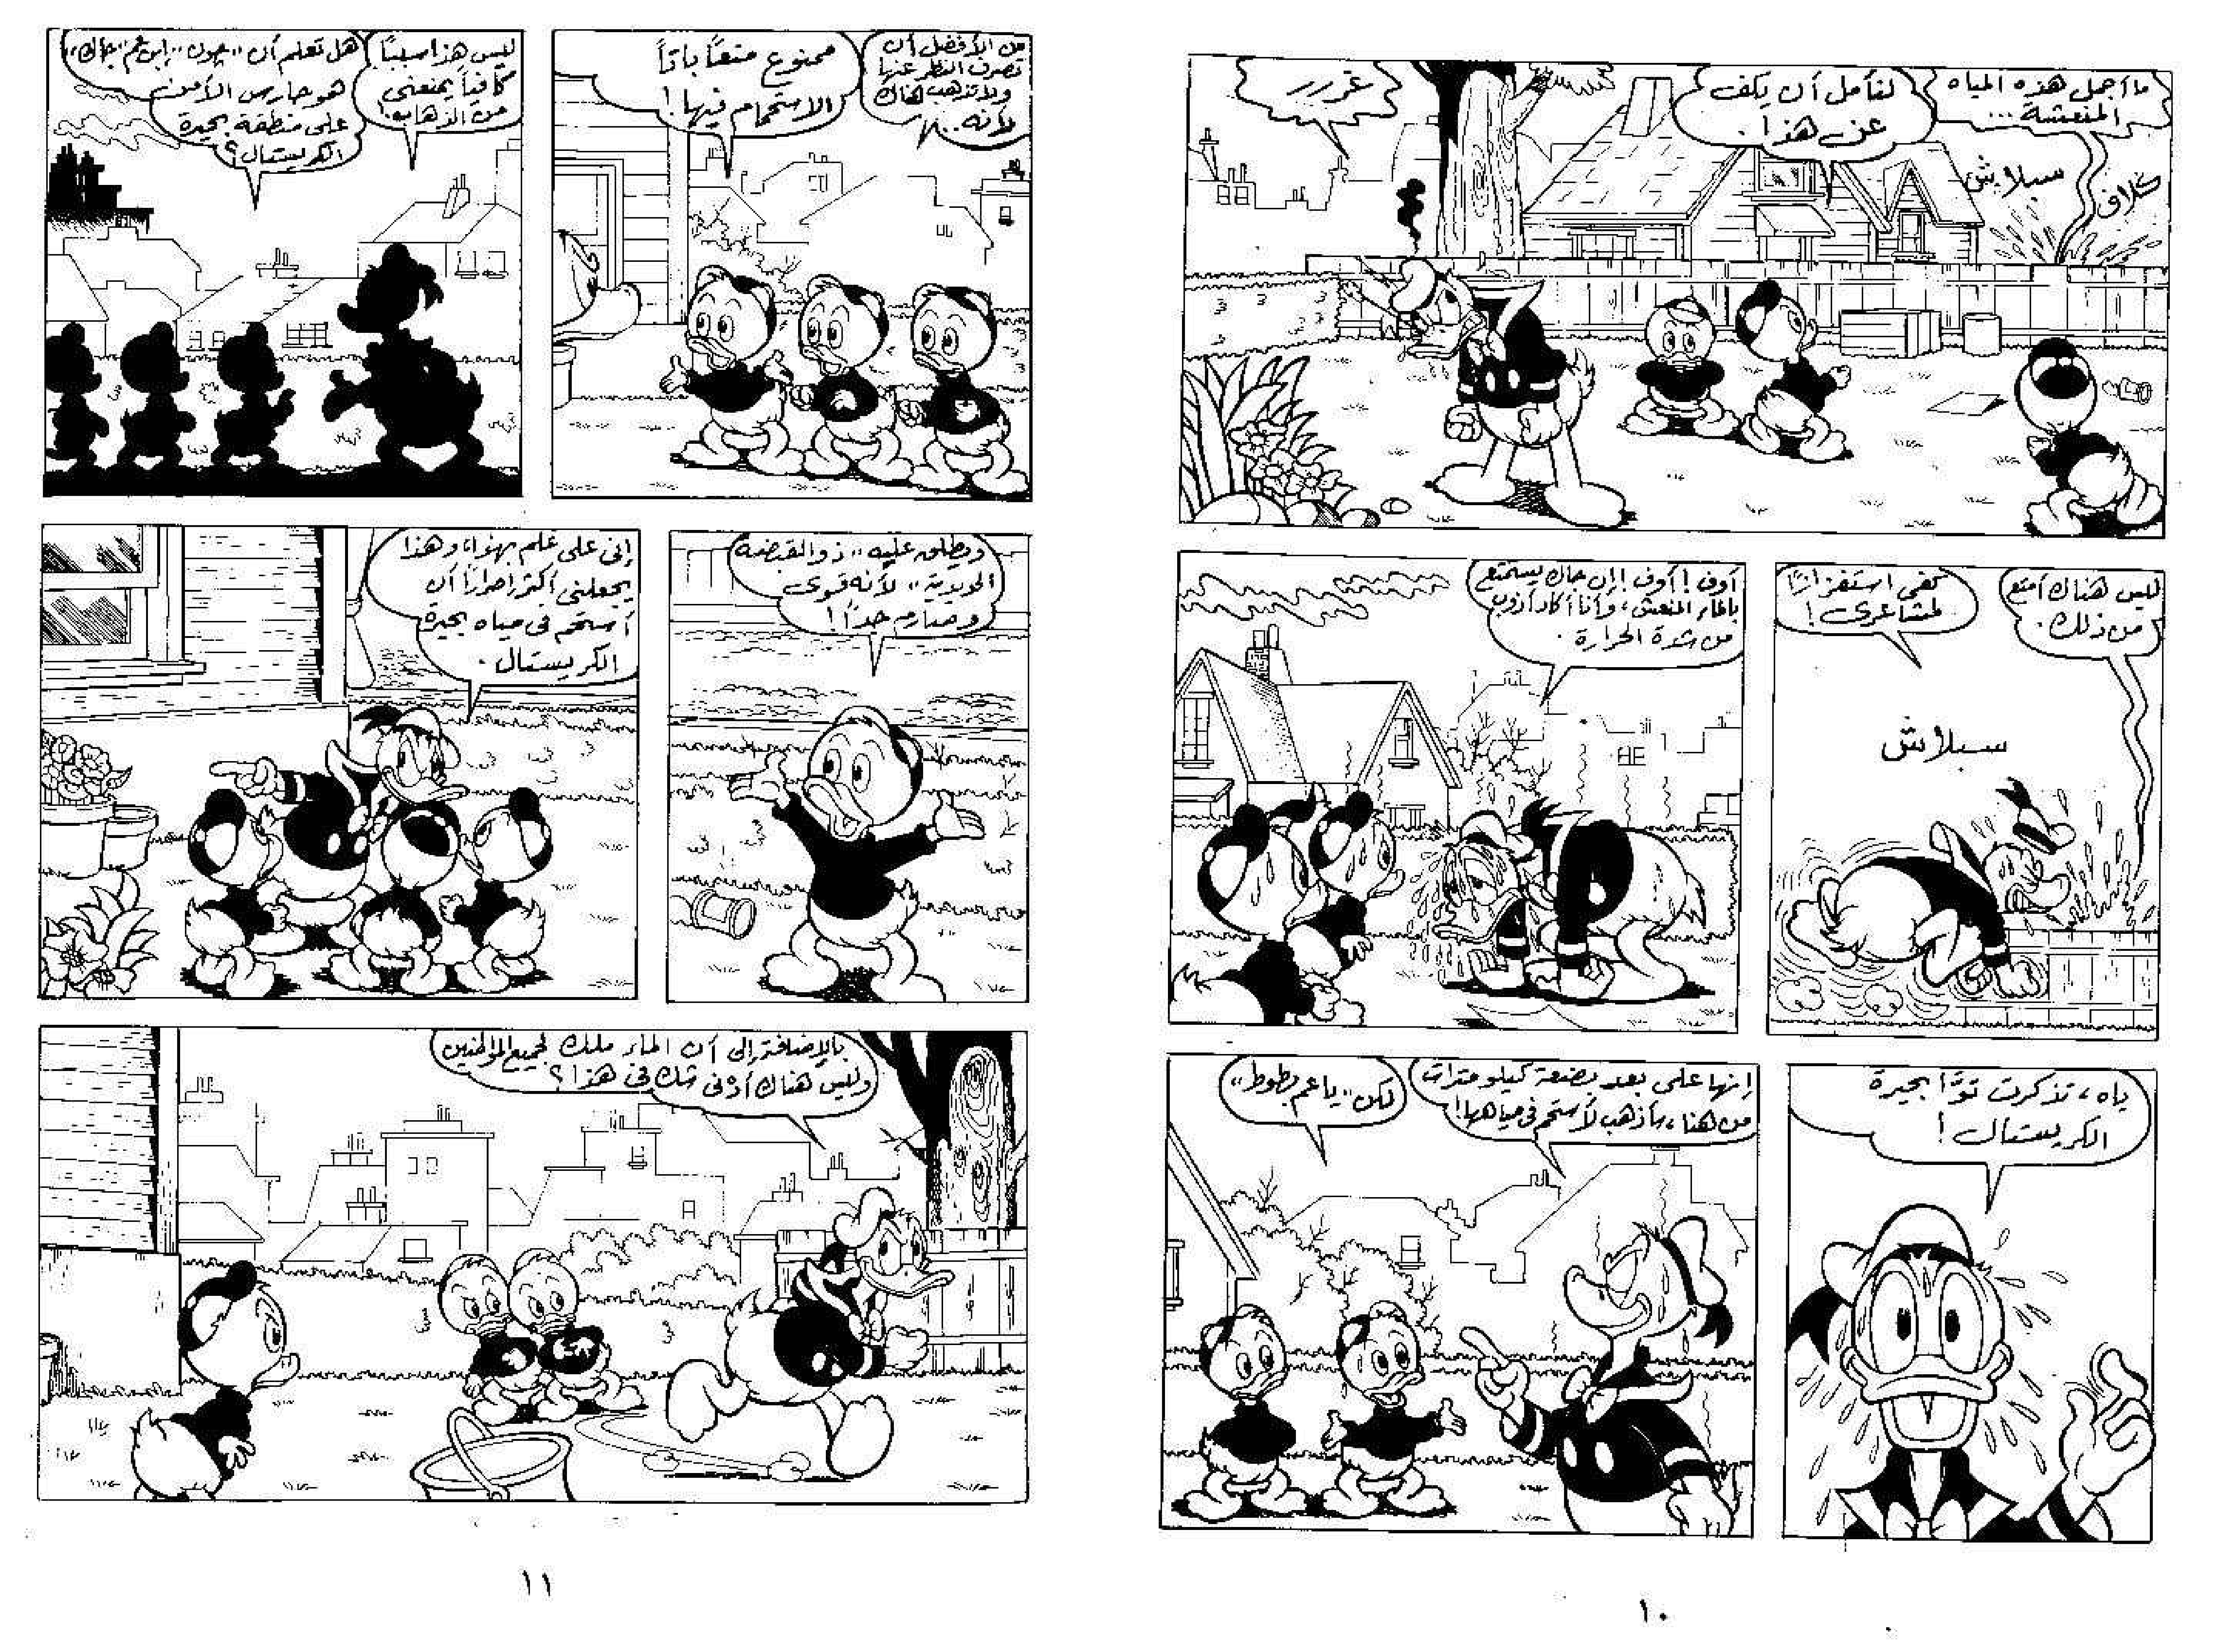 ما أجمل هذه المياه
المنعشة...
لنأمل أن يكف
عن هذا.
غررر
سبلاش
ليس هناك أمتع
من ذلك.
كفى استفزازًا
لمشاعرى!
سبلاش
أوف! أوف! إن جاك يستمتع
بالماء المنعش، وأنا أكاد أذوب
من شدة الحرارة.
ياه، تذكرت توًّا بحيرة
الكريستال!
إنها على بعد بضعة كيلومترات
من هنا، سأذهب لأستحم فى مياهها!
لكن "ياعم بطوط"
١٠
من الأفضل أن
تصرف النظر عنها
ولا تذهب هناك
لأنه..
ممنوع منعًا باتًا
الاستحمام فيها!
ليس هذا سببًا
كافيًا يمنعنى
من الذهاب!
هل تعلم أن "چون" إبن عم "جاك"
هو حارس الأمن
على منطقة بحيرة
الكريستال؟
ويطلق عليه "ذو القبضة
الحديدية" لأنه قوى
وصارم جدًا!
إنى على علم بهذا، وهذا
يجعلنى أكثر إصرارًا أن
أستحم فى مياه بحيرة
الكريستال.
بالإضافة إلى أن الماء ملك لجميع المواطنين
وليس هناك أدنى شك فى هذا؟
١١